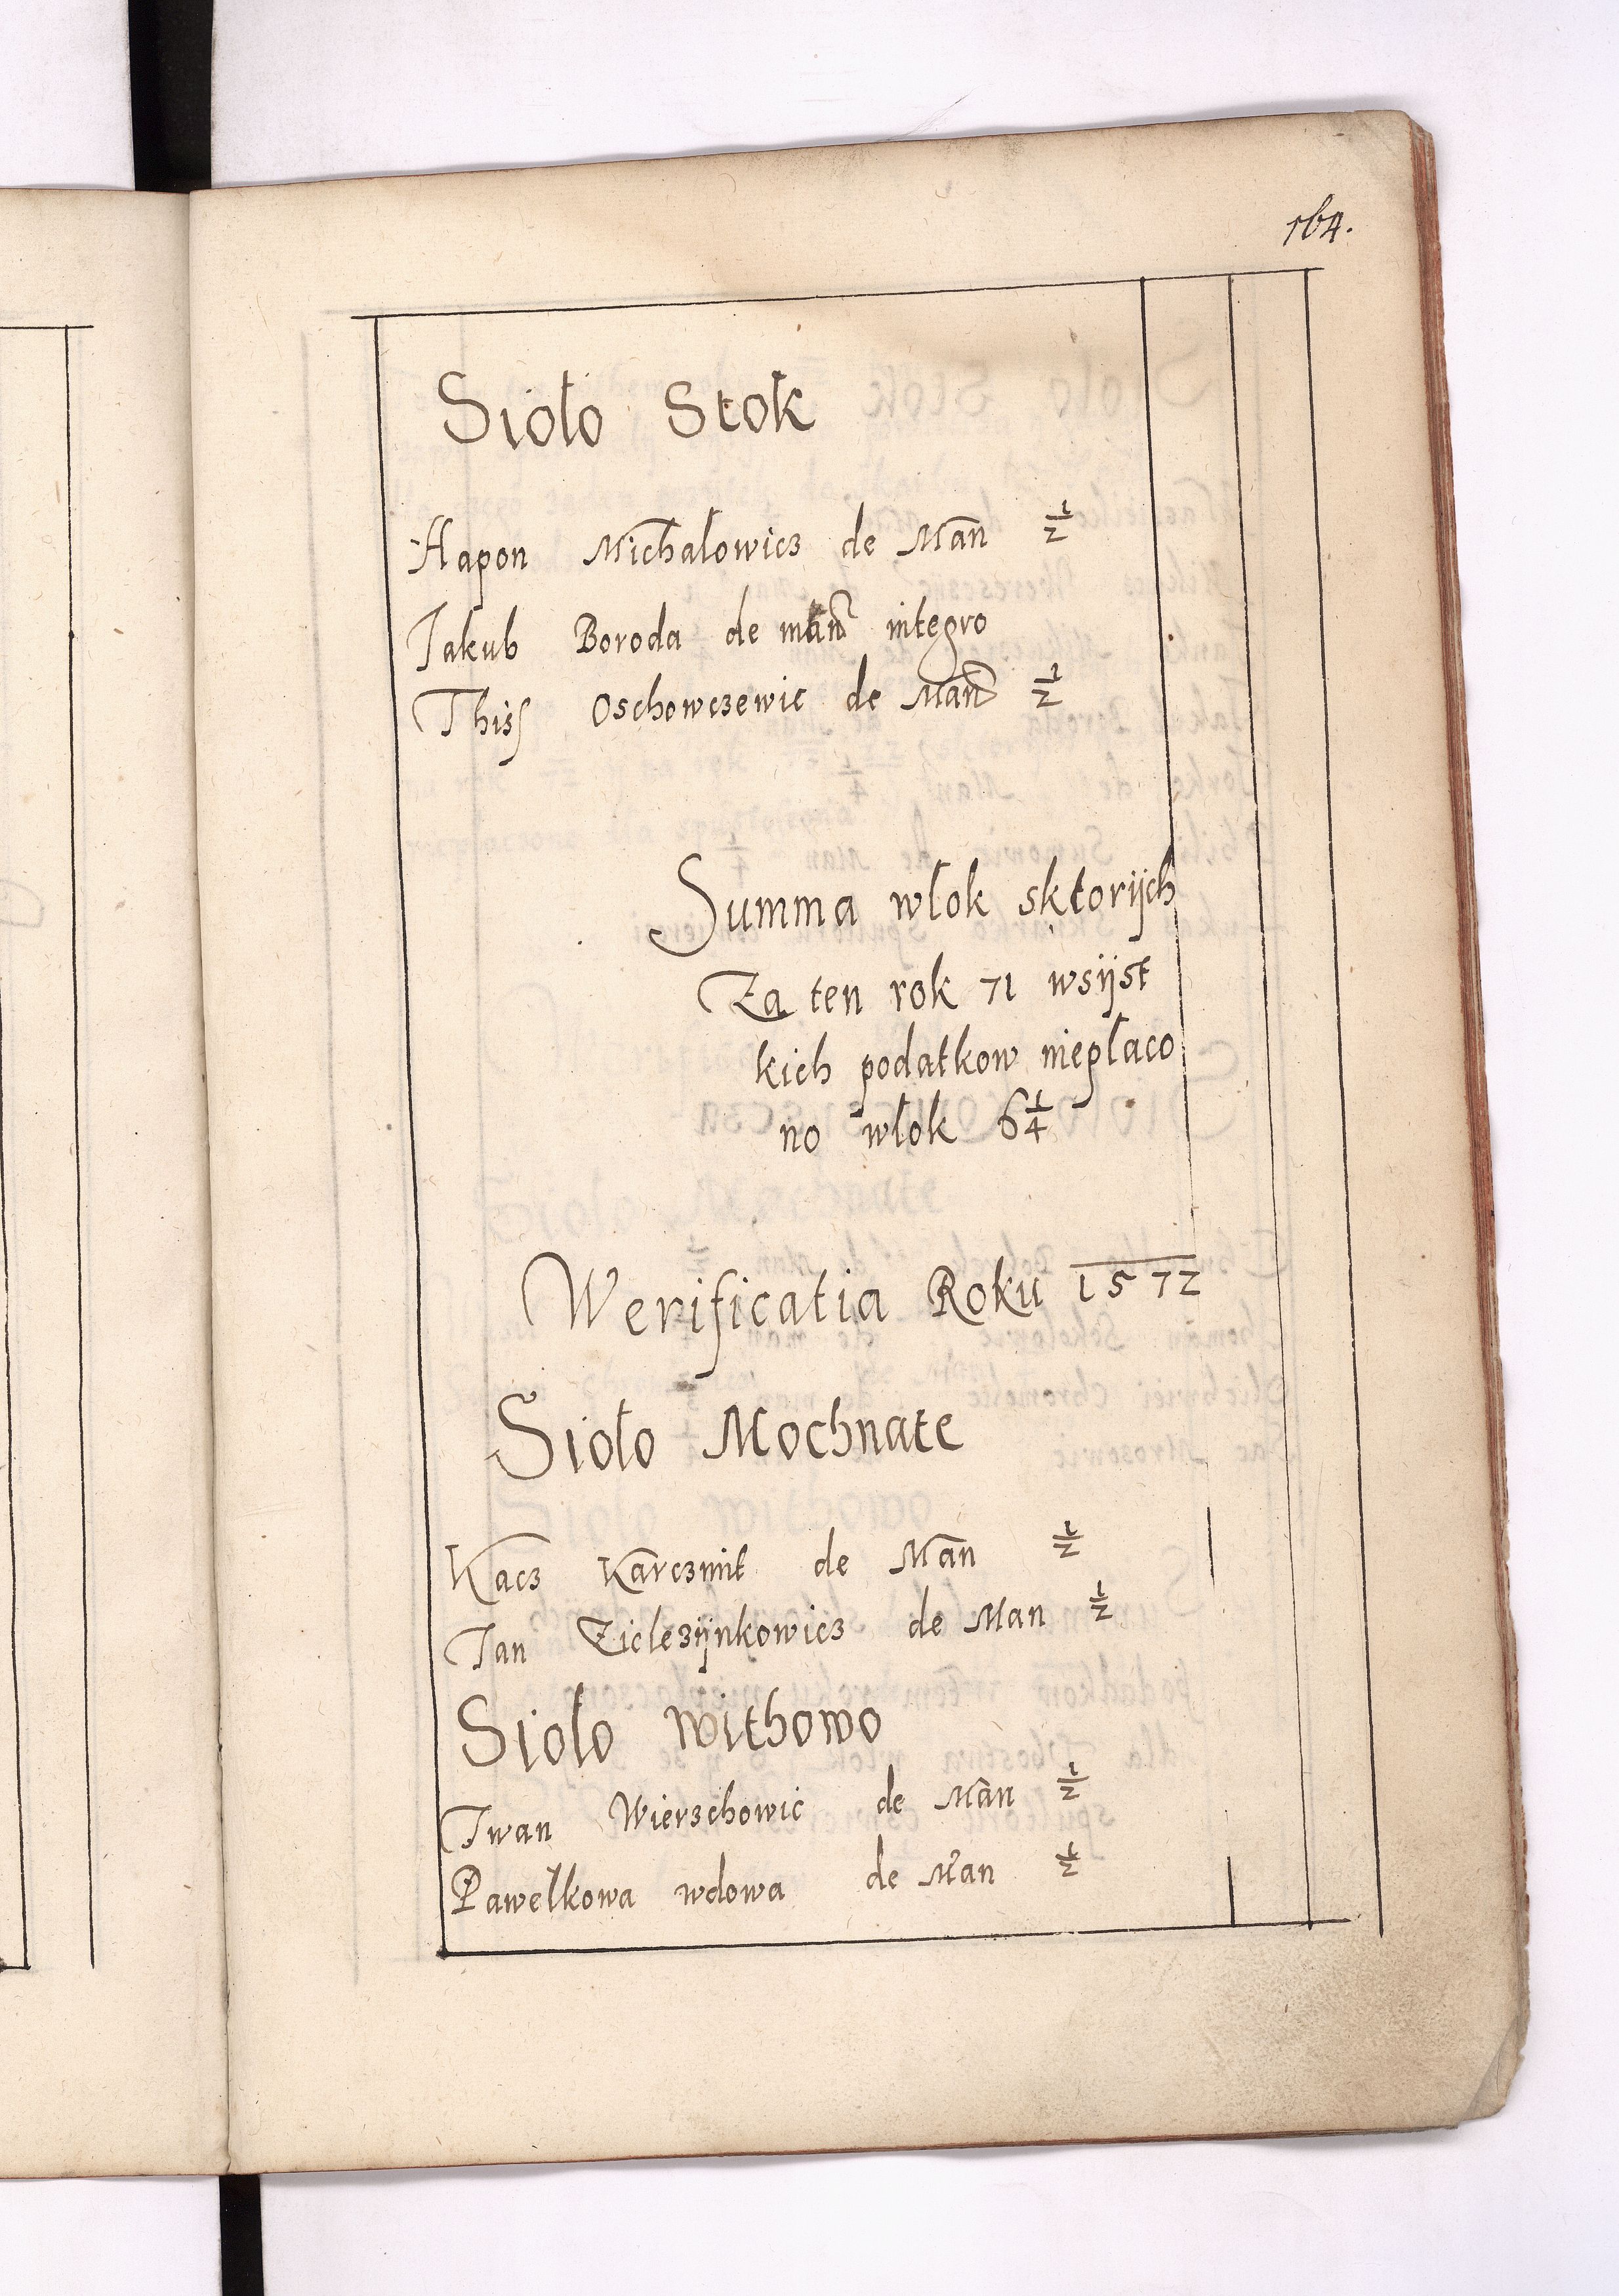 164.
Sioło Stok
Hapon Michałowicz de Man ½
Jakub Boroda de man integro
Thiss Oschowczewic de Man ½
Summa włok sktorijch
Za ten rok 71 wsijst
kich podatkow niepłaco
no włok 6¼
Werificatia Roku 1572
Sioło Mochnate
Kacz Karczmit de Man ½
Jan Ziclezijnkowicz de Man ½
Sioło Withowo
Iwan Wierzchowic de Man ½
Pawełkowa wdowa de Man ½